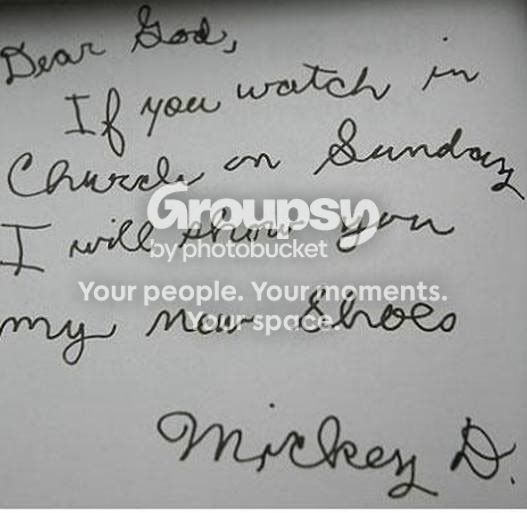 Dear God,
If you watch in
Church on Sunday
I will show you
Groupsy
by photobucket
Your people. Your moments.
Your space.
my new shoes
Mickey D.